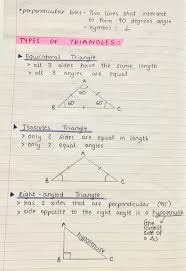 • perpendicular lines - Two lines that intersect
to form 90 degrees angle
- symbol : ⊥
TYPES OF TRIANGLES :
Equilateral Triangle
> all 3 sides have the same length
> all 3 angles are equal
A
60°
60° 60°
B C
Isosceles Triangle
> only 2 sides are equal in length
> only 2 equal angles
A
B C
Right-angled Triangle
> has 2 sides that are perpendicular (90°)
> side opposite to the right angle is a hypotenuse
(the
longest
side of
a Δ)
A
hypotenuse
B C